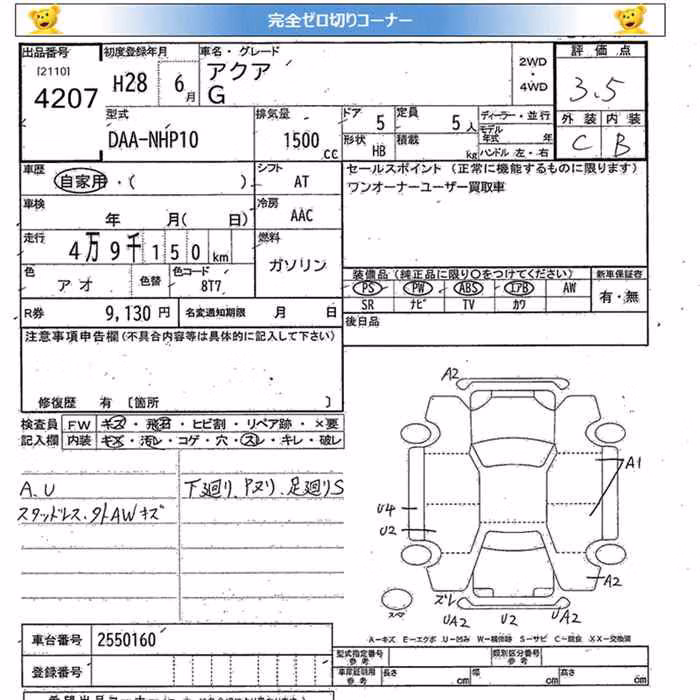 完全ゼロ切りコーナー
出品番号 初度登録年月 車名・グレード 評価点
[2110] 4207 H28 6月 アクア G 2WD・4WD 3.5
型式 排気量 ドア 5 定員 5人 ディーラー・並行 外装 内装
DAA-NHP10 1500cc 形状 HB 積載 kg モデル年式 年 C B
ハンドル 左・右
車歴 シフト セールスポイント (正常に機能するものに限ります)
自家用・( ) AT ワンオーナーユーザー買取車
車検 冷房
年 月( 日) AAC
走行 燃料
4万9千150km ガソリン
色 色替 色コード 装備品(純正品に限り〇をつけてください) 新車保証書
アオ 8T7 PS PW ABS エアB AW 有・無
SR ナビ TV カワ
R券 9,130円 名変通知期限 月 日 後日品
注意事項申告欄(不具合内容等は具体的に記入して下さい)
修復歴 有 [箇所 ]
検査員 FW キズ・飛石・ヒビ割・リペア跡・×要
記入欄 内装 キズ・汚レ・コゲ・穴・スレ・キレ・破レ
A、U 下廻り、Pヌリ、足廻りS
スタッドレス・外AWキズ
A2
A1
U4
U2
A2
ズレ
スペア UA2 U2 UA2
A-キズ E-エクボ U-凹み W-補修跡 S-サビ C-腐食 XX-交換済
車台番号 2550160
型式指定番号 参考 類別区分番号 参考
登録番号 車庫証明用 参考 長さ cm 幅 cm 高さ cm